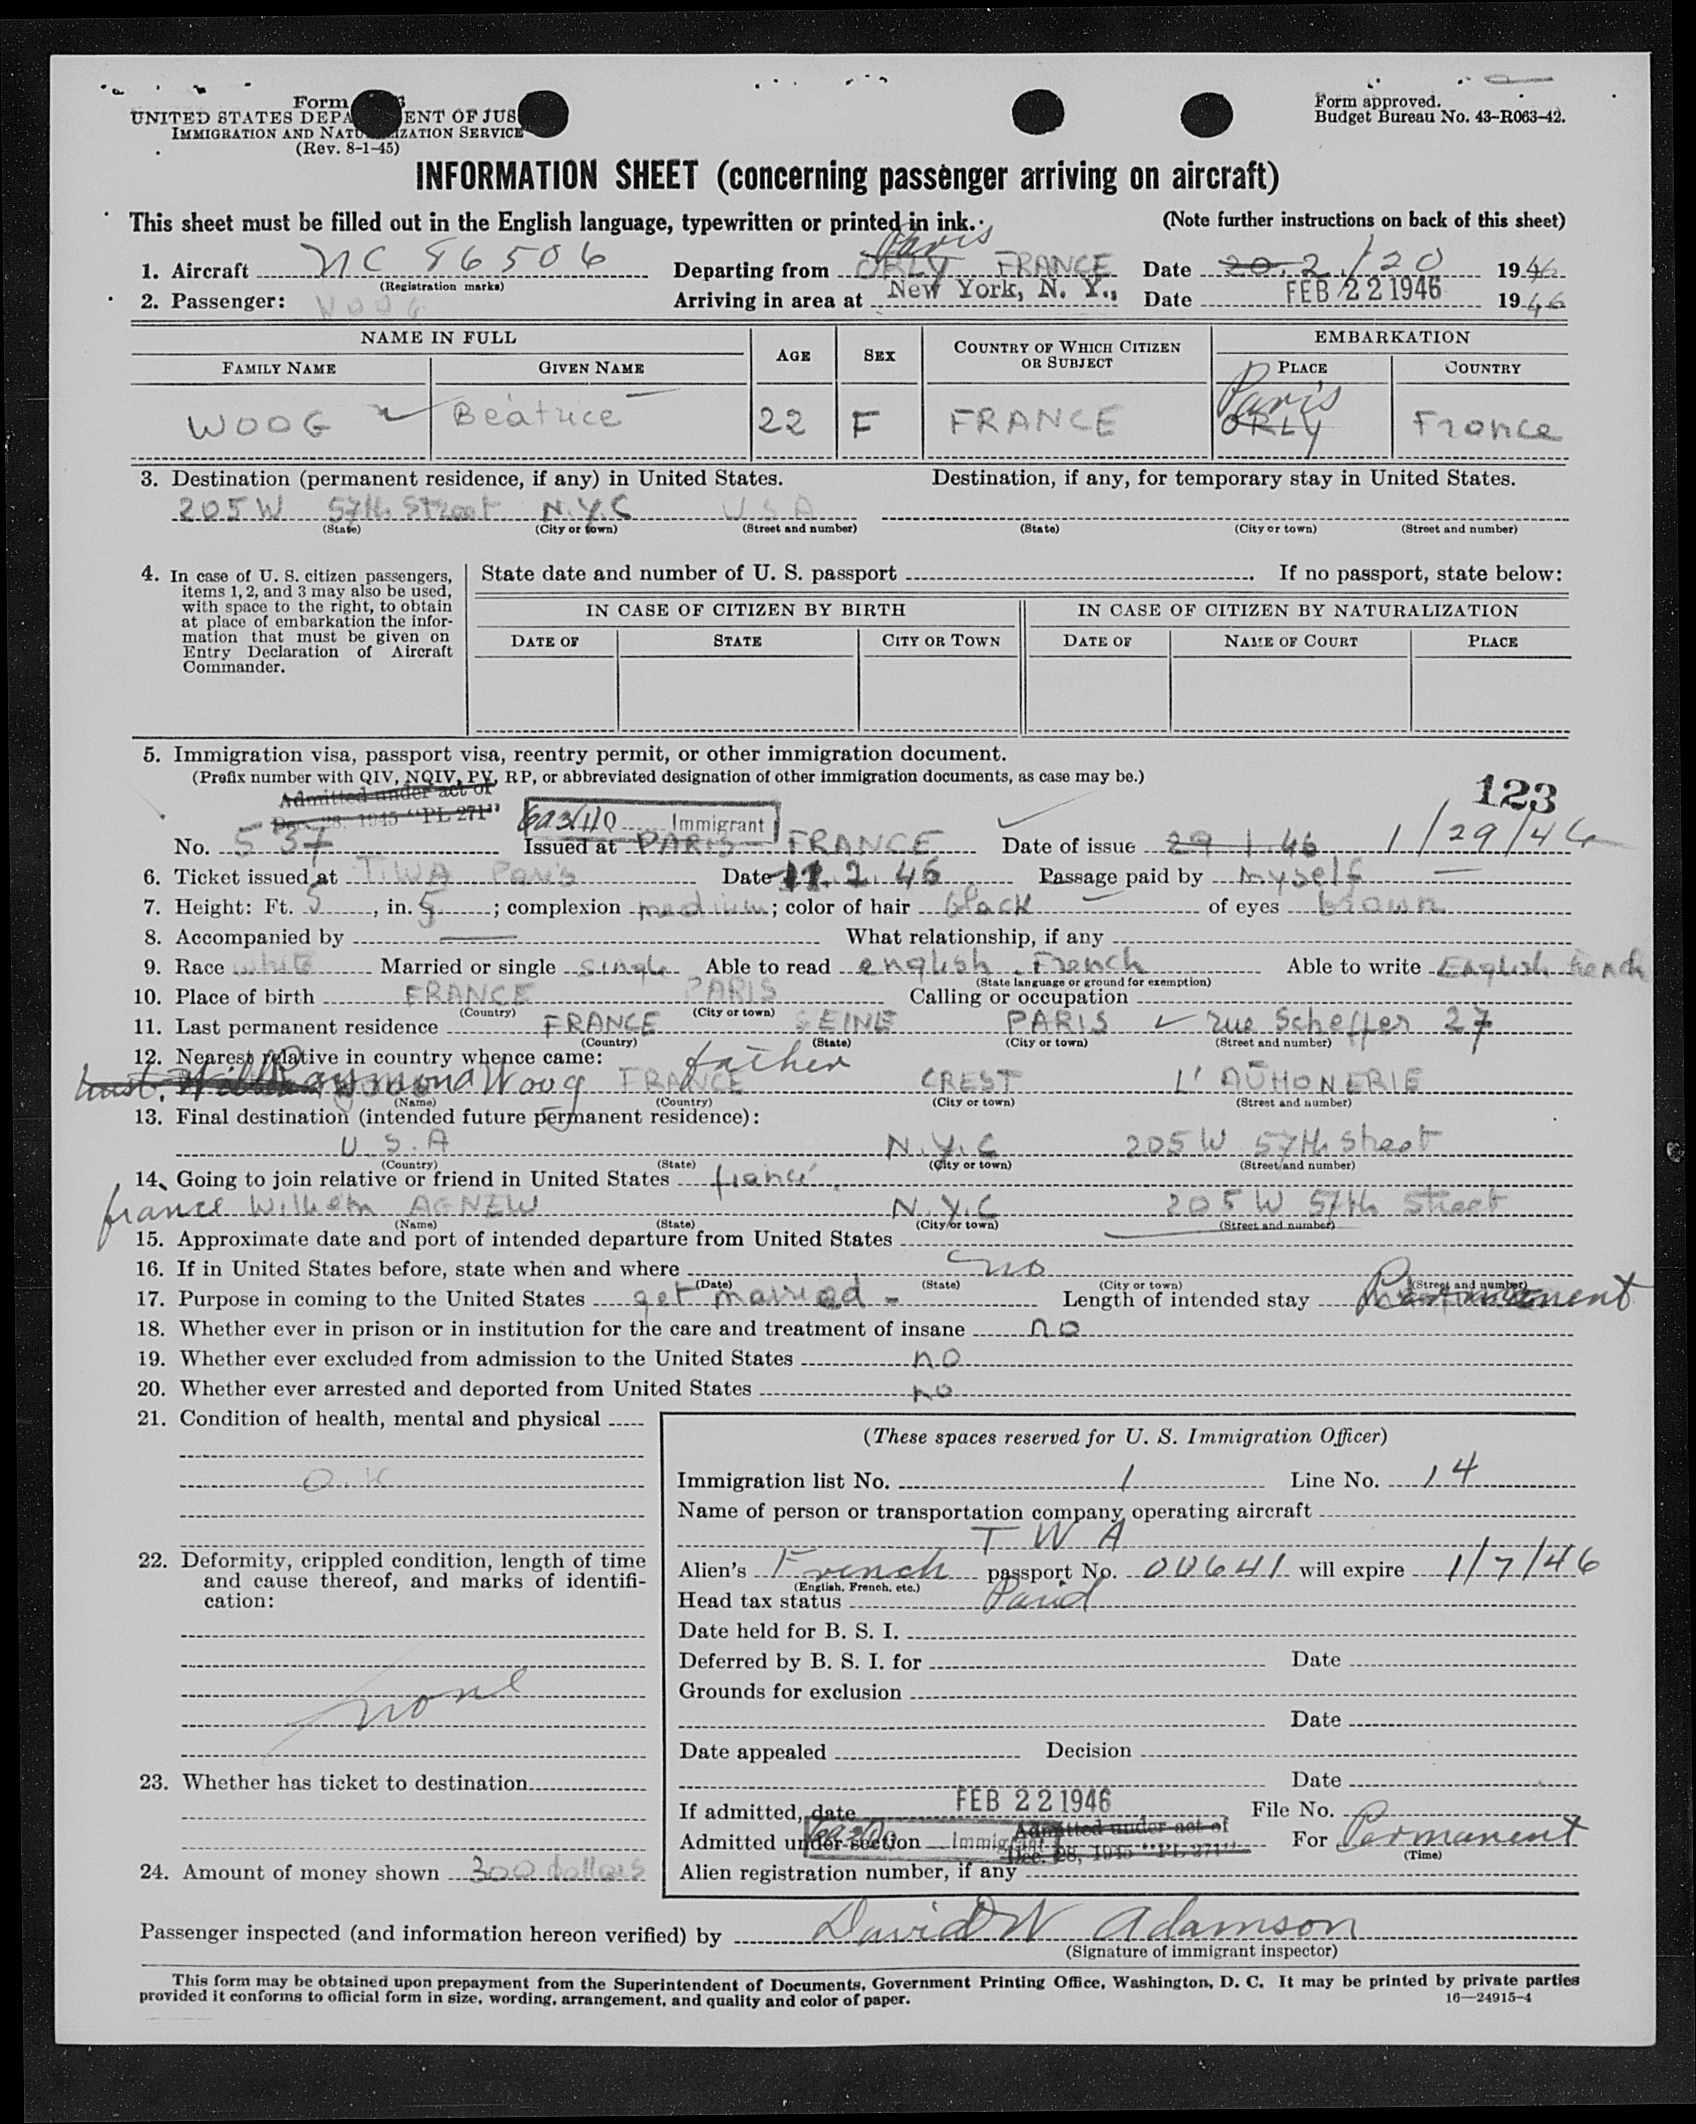 Form
UNITED STATES DEPA ENT OF JUS
IMMIGRATION AND NATU IZATION SERVICE
(Rev. 8-1-45)
Form approved.
Budget Bureau No. 43-R063-42.
INFORMATION SHEET (concerning passenger arriving on aircraft)
This sheet must be filled out in the English language, typewritten or printed in ink. (Note further instructions on back of this sheet)
Paris
1. Aircraft NC 86506 Departing from ORLY FRANCE Date 20.2./20 1946
(Registration marks)
2. Passenger: WOOG Arriving in area at New York, N. Y., Date FEB 22 1946 1946
NAME IN FULL AGE SEX COUNTRY OF WHICH CITIZEN OR SUBJECT EMBARKATION
FAMILY NAME GIVEN NAME PLACE COUNTRY
Paris
WOOG Béatrice 22 F FRANCE ORLY France
3. Destination (permanent residence, if any) in United States. Destination, if any, for temporary stay in United States.
205 W 57th Street N.Y.C U.S.A
(State) (City or town) (Street and number) (State) (City or town) (Street and number)
4. In case of U. S. citizen passengers, items 1, 2, and 3 may also be used, with space to the right, to obtain at place of embarkation the information that must be given on Entry Declaration of Aircraft Commander.
State date and number of U. S. passport If no passport, state below:
IN CASE OF CITIZEN BY BIRTH IN CASE OF CITIZEN BY NATURALIZATION
DATE OF STATE CITY OR TOWN DATE OF NAME OF COURT PLACE
5. Immigration visa, passport visa, reentry permit, or other immigration document.
(Prefix number with QIV, NQIV, PV, RP, or abbreviated designation of other immigration documents, as case may be.)
123
Admitted under act of
Dec. 28, 1945 "PL 271"
Immigrant
No. 537 Issued at PARIS FRANCE Date of issue 29 1.46 1/29/46
6. Ticket issued at T.W.A Paris Date 11.2.46 Passage paid by myself
7. Height: Ft. 5, in. 5; complexion medium; color of hair black of eyes brown
8. Accompanied by What relationship, if any
9. Race white Married or single single Able to read english. French Able to write English French
(State language or ground for exemption)
10. Place of birth FRANCE PARIS Calling or occupation
(Country) (City or town)
11. Last permanent residence FRANCE SEINE PARIS rue Scheffer 27
(Country) (State) (City or town) (Street and number)
12. Nearest relative in country whence came: father
Raymond Woog FRANCE CREST L'AUMONERIE
(Name) (Country) (City or town) (Street and number)
13. Final destination (intended future permanent residence):
U.S.A N.Y.C 205 W 57th Street
(Country) (State) (City or town) (Street and number)
14. Going to join relative or friend in United States fiancé
fiance Wilhem AGNEW N.Y.C 205 W 57th Street
(Name) (State) (City or town) (Street and number)
15. Approximate date and port of intended departure from United States
16. If in United States before, state when and where no
(Date) (State) (City or town) (Street and number)
17. Purpose in coming to the United States get married - Length of intended stay Permanent
18. Whether ever in prison or in institution for the care and treatment of insane no
19. Whether ever excluded from admission to the United States no
20. Whether ever arrested and deported from United States no
21. Condition of health, mental and physical
O.K
22. Deformity, crippled condition, length of time and cause thereof, and marks of identification:
none
23. Whether has ticket to destination
24. Amount of money shown 300 dollars
(These spaces reserved for U. S. Immigration Officer)
Immigration list No. 1 Line No. 14
Name of person or transportation company operating aircraft
T W A
Alien's French passport No. 00641 will expire 1/7/46
(English, French, etc.)
Head tax status Paid
Date held for B. S. I.
Deferred by B. S. I. for Date
Grounds for exclusion
Date
Date appealed Decision
Date
If admitted, date FEB 22 1946 File No.
Admitted under section Immigrant Admitted under act of Dec. 28, 1945 "PL 271" For Permanent
(Time)
Alien registration number, if any
Passenger inspected (and information hereon verified) by David W Adamson
(Signature of immigrant inspector)
This form may be obtained upon prepayment from the Superintendent of Documents, Government Printing Office, Washington, D. C. It may be printed by private parties
provided it conforms to official form in size, wording, arrangement, and quality and color of paper. 16—24915-4